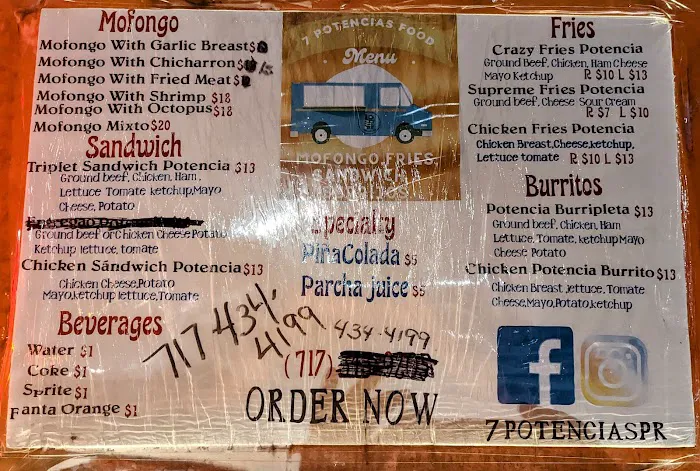 Mofongo
Mofongo With Garlic Breast $
Mofongo With Chicharron $ 15
Mofongo With Fried Meat $
Mofongo With Shrimp $18
Mofongo With Octopus $18
Mofongo Mixto $20
Sandwich
Triplet Sandwich Potencia $13
Ground beef, Chicken, Ham,
Lettuce Tomate ketchup,Mayo
Cheese, Potato
Ground beef or Chicken Cheese Potato
Ketchup lettuce, tomate
Chicken Sándwich Potencia $13
Chicken Cheese,Potato
Mayo,ketchup lettuce,Tomate
Beverages
Water $1
Coke $1
Sprite $1
Fanta Orange $1
7 POTENCIAS FOOD
Menu
MOFONGO FRIES
SANDWICH
Specialty
PiñaColada $5
Parcha juice $5
717 434,
4199
434-4199
(717)
ORDER NOW
Fries
Crazy Fries Potencia
Ground Beef, Chicken, Ham Cheese
Mayo Ketchup R $10 L $13
Supreme Fries Potencia
Ground beef, Cheese Sour Cream
R $7 L $10
Chicken Fries Potencia
Chicken Breast,Cheese,ketchup,
Lettuce tomate R $10 L $13
Burritos
Potencia Burripleta $13
Ground beef, Chicken, Ham
Lettuce, Tomate, ketchup Mayo
Cheese Potato
Chicken Potencia Burrito $13
Chicken Breast ,lettuce, Tomate
Cheese,Mayo,Potato,ketchup
f
7POTENCIASPR